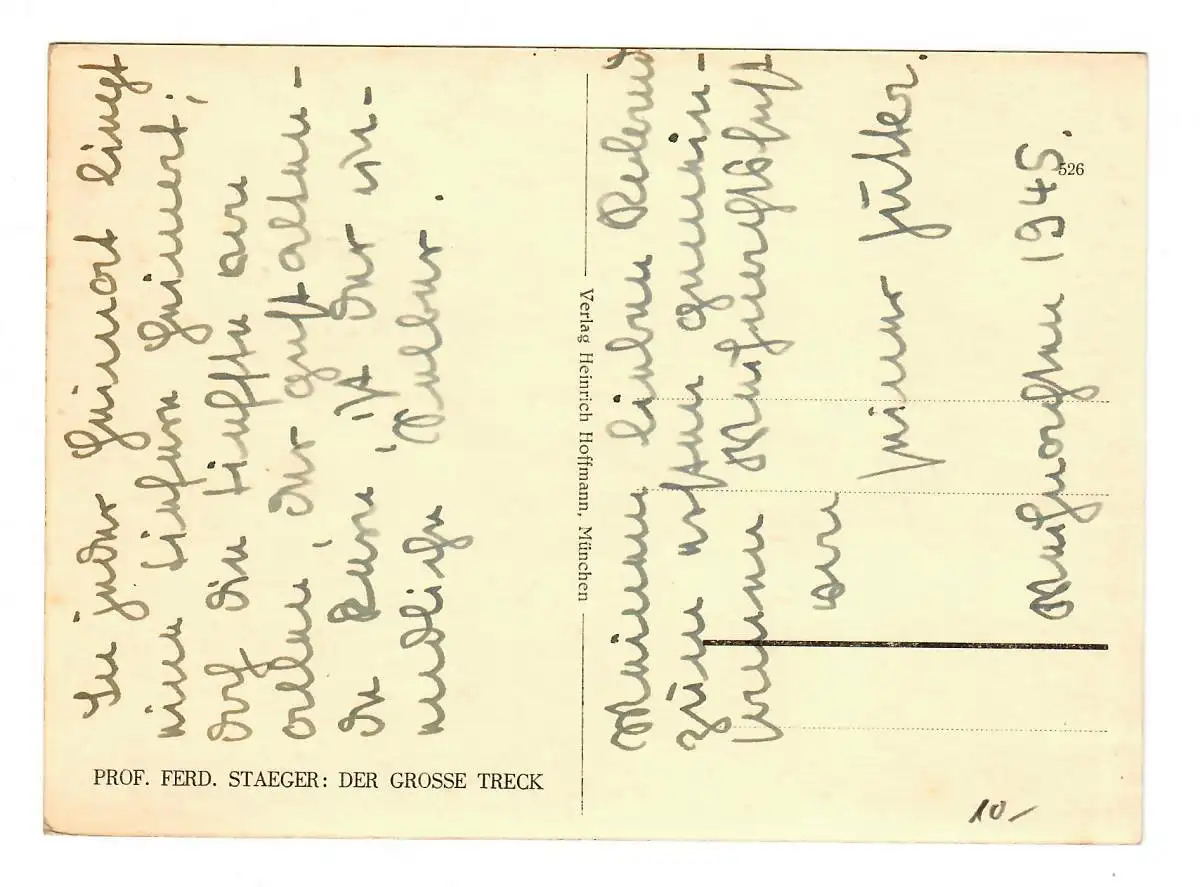 In jeder Heimat liegt
eine tiefere Heimat;
doch die tiefste von
allen, der gestalten-
de ist der un-
endliche
PROF. FERD. STAEGER: DER GROSSE TRECK
Verlag Heinrich Hoffmann, München
Meinem lieben Roland
zum ersten gemein-
samen Weihnachtsfest
von
seiner
Weihnachten 1945.
526
10.-